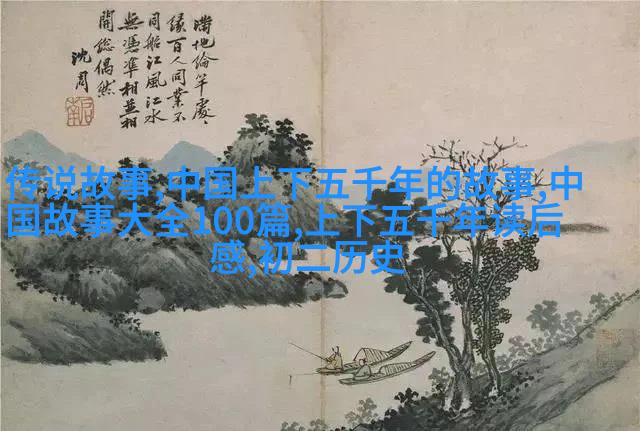 滿地綸竿處〻
緣百人同業不
同船江風江水
無憑準相並相
開總偶然
沈周
传说故事,中国上下五千年的故事,中
国故事大全100篇,上下五千年读后
感,初二历史